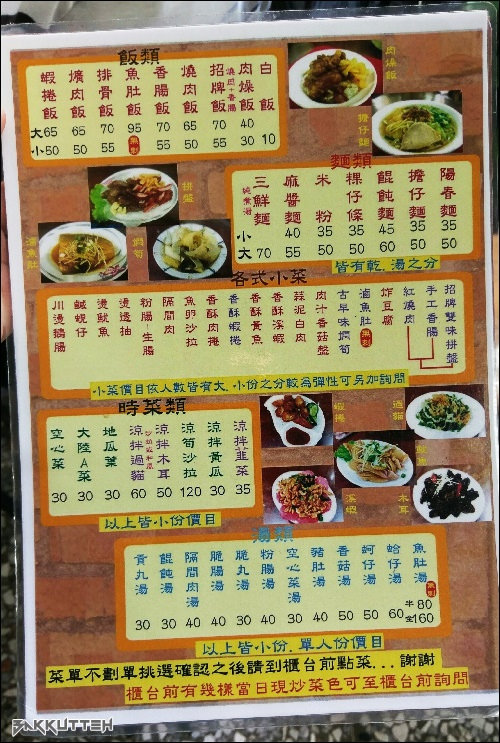 飯類
白飯
肉燥飯
招牌飯
燒肉+香腸
燒肉飯
香腸飯
魚肚飯
排骨飯
爌肉飯
蝦捲飯
大 65 65 70 95 70 65 70 40
小 50 50 55 無刺 55 50 55 30 10
肉燥飯
擔仔麵
麵類
陽春麵
擔仔麵
餛飩麵
粿仔條
米粉
麻醬麵
三鮮麵
純煮湯
小 40 35 35 45 35 35
大 70 55 50 50 60 50 50
皆有乾.湯之分
拼盤
滷魚肚
燜筍
各式小菜
招牌雙味拼盤
手工香腸
紅燒肉
炸豆腐
滷魚肚
無刺
古早味燜筍
肉汁香菇盤
蒜泥白肉
香酥溪蝦
香酥黃魚
香酥蝦捲
香酥肉捲
魚卵沙拉
隔間肉
粉腸-生腸
燙透抽
燙魷魚
鹹蜆仔
川燙鵝腸
小菜價目依人數皆有大.小份之分較為彈性可另加詢問
時菜類
涼拌韭菜
涼拌黃瓜
涼筍沙拉
涼拌木耳
涼拌過貓
地瓜葉
大陸A菜
空心菜
30 30 30 60 50 120 30 35
以上皆小份價目
蝦捲
過貓
溪蝦
木耳
湯類
魚肚湯
無刺
蛤仔湯
蚵仔湯
香菇湯
豬肚湯
空心菜湯
粉腸湯
脆丸湯
脆腸湯
隔間肉湯
餛飩湯
貢丸湯
30 30 40 40 30 40 30 40 50 50 60 半80
全160
以上皆小份.單人份價目
菜單不劃單挑選確認之後請到櫃台前點菜...謝謝
櫃台前有幾樣當日現炒菜色可至櫃台前詢問
BAKKUTTEH